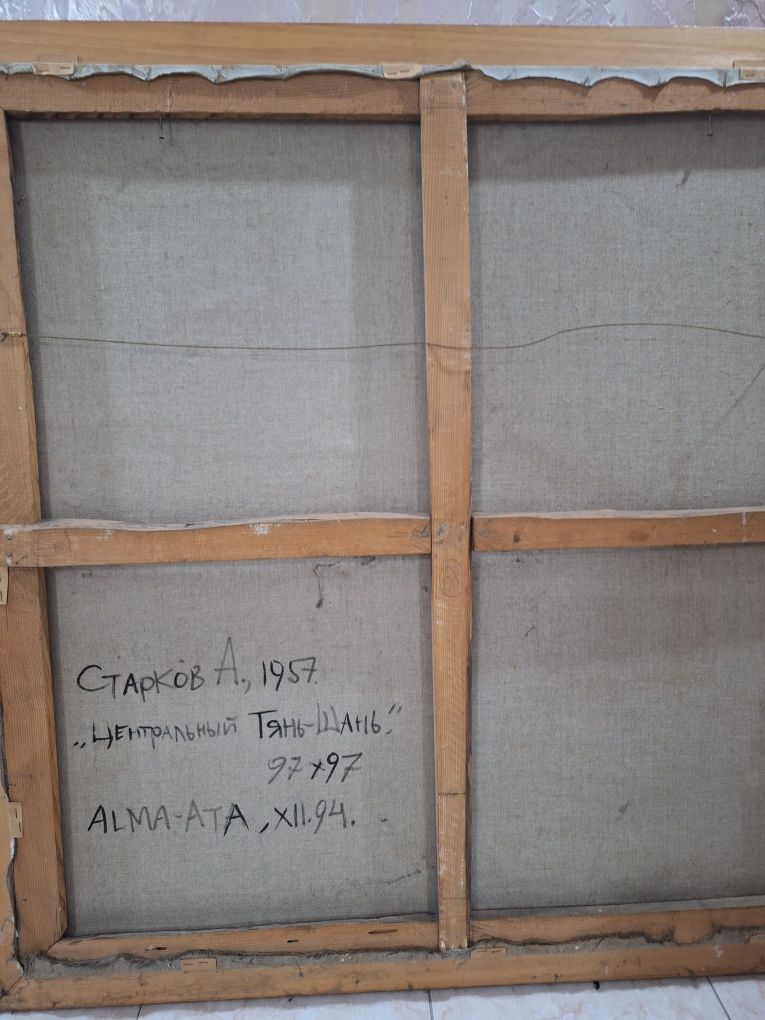 Старков А., 1957.
„Центральный Тянь-Шань."
97x97
ALMA-ATA, XII.94.